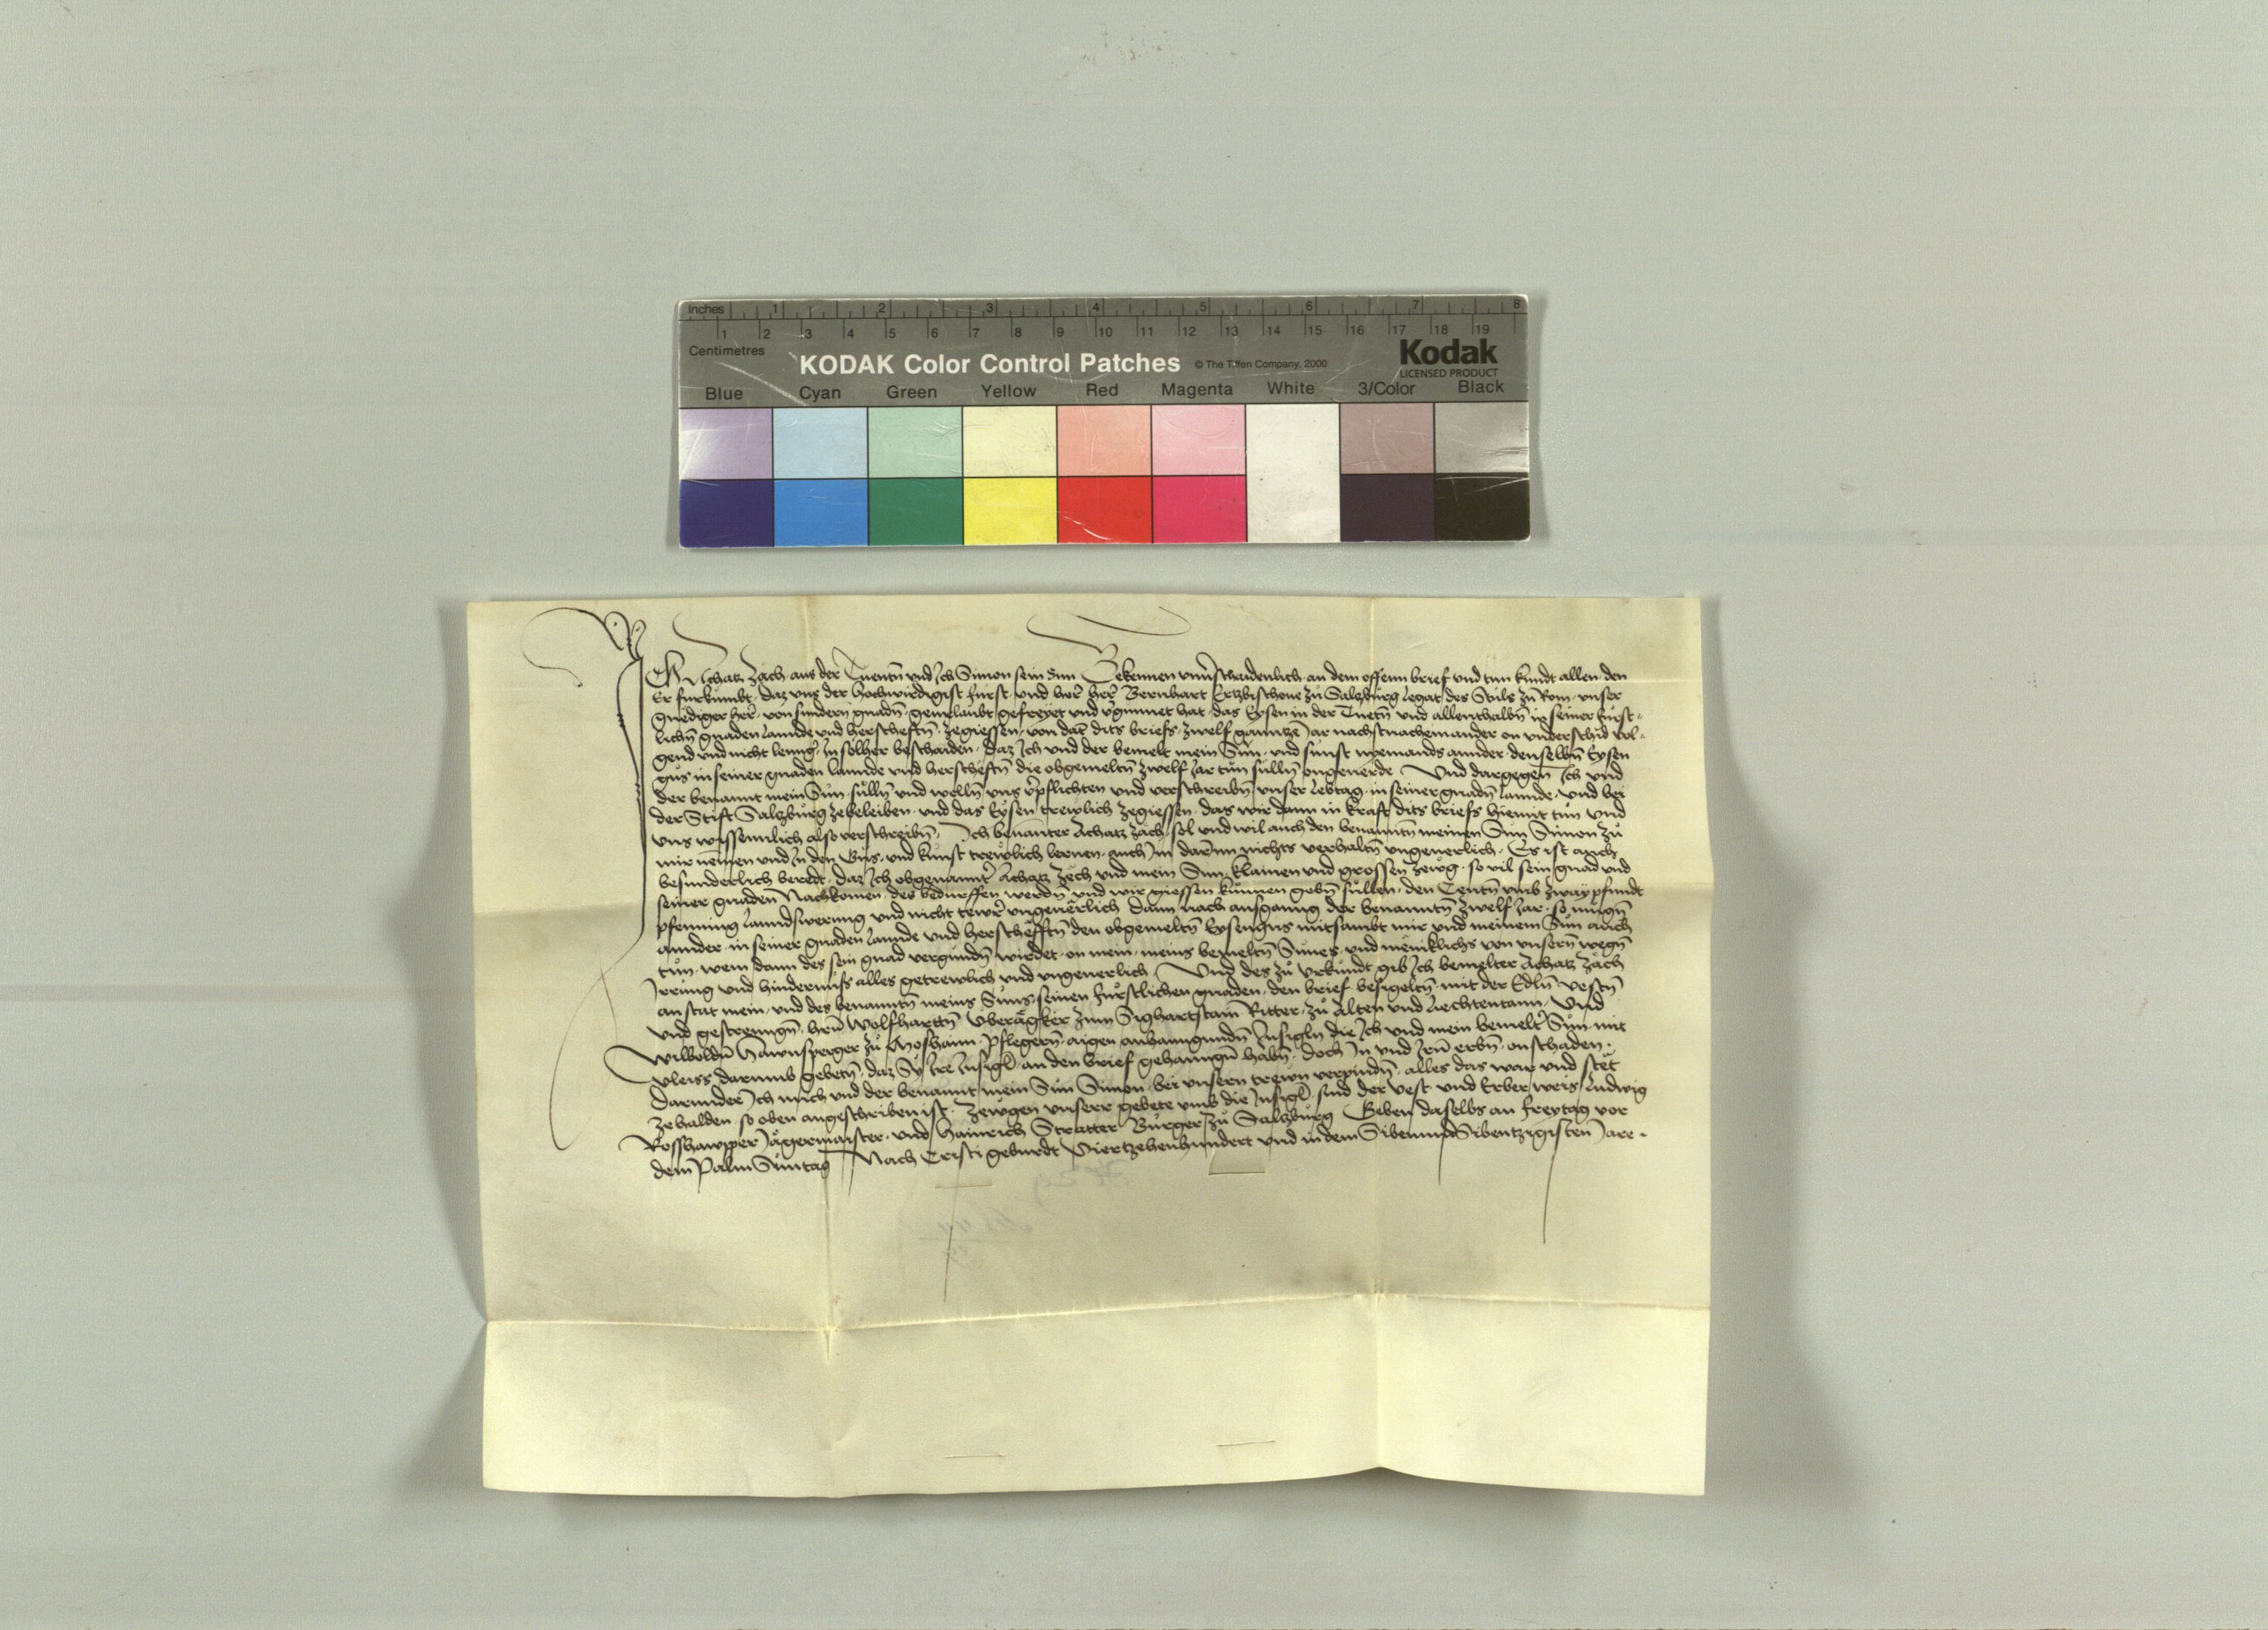 Inches 1 2 3 4 5 6 7 8
1 2 3 4 5 6 7 8 9 10 11 12 13 14 15 16 17 18 19
Centimetres
KODAK Color Control Patches © The Tiffen Company, 2000 Kodak
LICENSED PRODUCT
Blue Cyan Green Yellow Red Magenta White 3/Color Black
Ich Achatz Zäch aus der Tuentn̄ vnd Ich Simon sein Sun Bekennen vnuerschaidenlich an dem offenn brief vnd tun kundt allen den
Er furkumbt, daz vns der hochwirdigist furst vnd her her Bernhart Ertzbischoue zu Salzburg Legat des Stuls zu Rom, vnser
gnediger her, von sundern gnadn̄, geuerlaubt gefreyet vnd vergunnet hat, das Eysen in der Tuetn̄ vnd allenthalbn̄ in seiner fürst-
lichn̄ gnaden Lannde vnd herscheftn̄, zegiessen, von dat dits briefs, zwelf gannze Jar nachstnacheinander on vnderschid vol-
gend vnd nicht lenng, In solher beschaiden, daz Ich vnd der bemelt mein Sun, vnd sunst nyemands annder denselbn̄ Eysen
gus in seiner gnaden lannde vnd herscheftn̄ die obgemeltn̄ zwelf Jar tun sulln̄ ongeuerde Vnd dargegen Ich vnd
der benannt mein Sun sulln̄ vnd welln̄ vns verpflichten vnd verschreibn̄ vnser Lebtag, in seiner gnadn̄ Lannde, vnd bei
der Stift Salzburg zebeleiben, vnd das Eysen trewlich zegiessen, das wir dann in kraft dits briefs hiemit tun vnd
vns wissennlich also verschreibn̄, Ich benanter Achatz Zäch sol vnd wil auch den benanntn̄ meinen Sun Simon zu
mir nemen vnd In den Gus, vnd kunst trewlich lernen, auch Im darInn nichts verhaltn̄ vngeuerlich. Es ist auch
besunderlich beredt, daz Ich obgenannter Achatz Zech vnd mein Sun, klainen vnd grossen zewg, so vil sein gnad vnd
seiner gnaden Nachkomen, des bedurffen werdn̄ vnd wir giessen kunnen gebn̄ sullen, den Centn̄ vmb zway pfundt
pfenning Lanndswerung vnd nicht tewrer vngeuerlich Dann nach ausganng der benanntn̄ zwelf Jar, so mugn̄
annder, in seiner gnaden Lannde vnd herschefftn̄ den obgemeltn̄ Eysengus mitsambt mir vnd meinem Sun auch
tun, wem dann des sein gnad vergundn̄ wirdet, on mein, meins bemeltn̄ Sunes, vnd meniklichs von vnsern wegn̄
Irrung vnd hindernuss alles getrewlich vnd vngeuerlich Vnd des zu vrkundt gib Ich bemelter Achatz Zäch
anstat mein, vnd des benanntn̄ meins Suns, seinen fürstlichen gnaden, den brief besigeltn̄, mit der Edln̄ Vestn̄
vnd gestrenngn̄, hrn̄ Wolfharttn̄ Vberägker zum Sighartstain Ritter, zu Alten vnd Liechtentann, Vnd
Wilboldn̄ Hawnsperger zu Moshaim Pflegern̄, aigen anhanngunden Insigln die Ich vnd mein bemelter Sun mit
vleiss darumb gebetn̄, daz Sy Ire Insigl an den brief gehanngn̄ habn̄, doch In vnd Irn̄ erbn̄, onschaden,
darunder Ich mich vnd der benannt mein Sun Simon bei vnsern trewn verpindn̄, alles das war vnd stet
zehalden, so oben angeschriben ist, Zewgen vnserr gebete vmb die Insigl sind der vest vnd Erber weis Ludwig
Rosshawpper Jägermaister, vnd Hainrich Stratter Burger zu Salzburg Geben daselbs an freytag vor
dem Palm Suntag Nach Cristi geburdt Viertzehenhundert vnd in dem Sibenundsibentzigisten Jare.